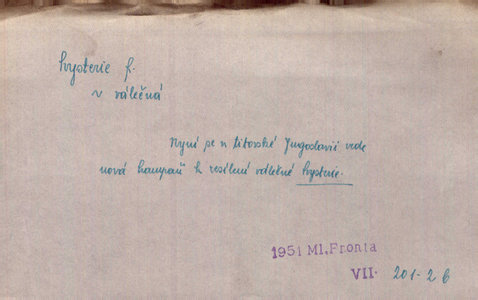 hysterie f.
v válečná
Nyní se v titovské Jugoslavii vede
nová kampaň k zesílení válečné hysterie.
1951 Ml. Fronta
VII. 201-2 6